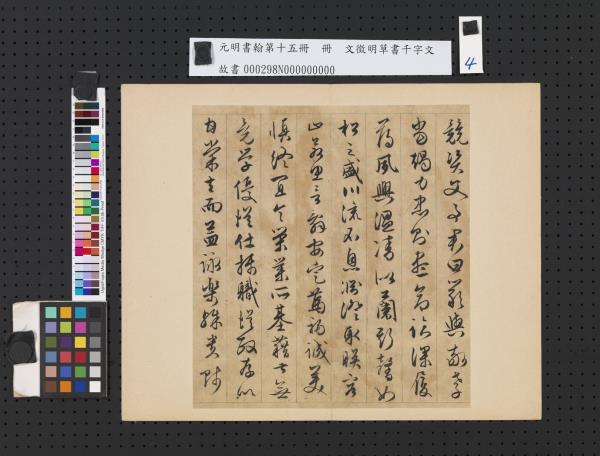 元明書翰第十五冊 冊 文徵明草書千字文
故書 000298N000000000
4
競資父事君曰嚴與敬孝
當竭力忠則盡命臨深履
薄夙興溫凊似蘭斯馨如
松之盛川流不息淵澄取映容
止若思言辭安定篤初誠美
慎終宜令榮業所基藉甚無
竟學優登仕攝職從政存以
甘棠去而益詠樂殊貴賤